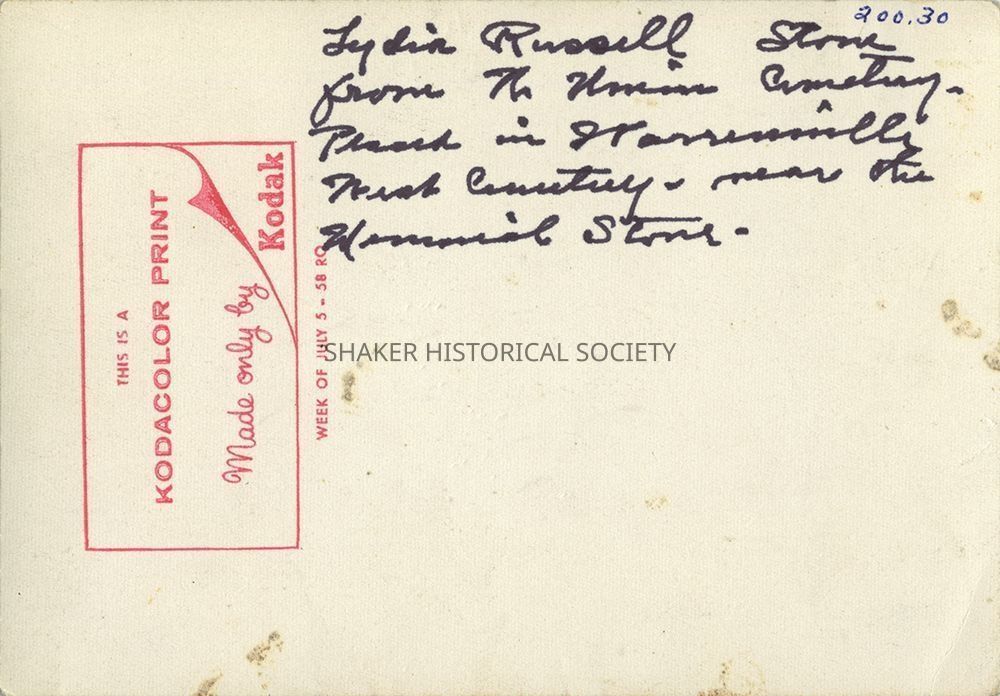 200.30
Lydia Russell Stone
from The Union Cemetery.
Placed in Warrensville
West Cemetery. near the
Memorial Stone.
THIS IS A
KODACOLOR PRINT
Made only by
Kodak
WEEK OF JULY 5 - 58 RO
SHAKER HISTORICAL SOCIETY